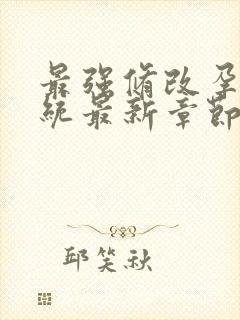 最强脩改孕
统最新章节
邱笑秋